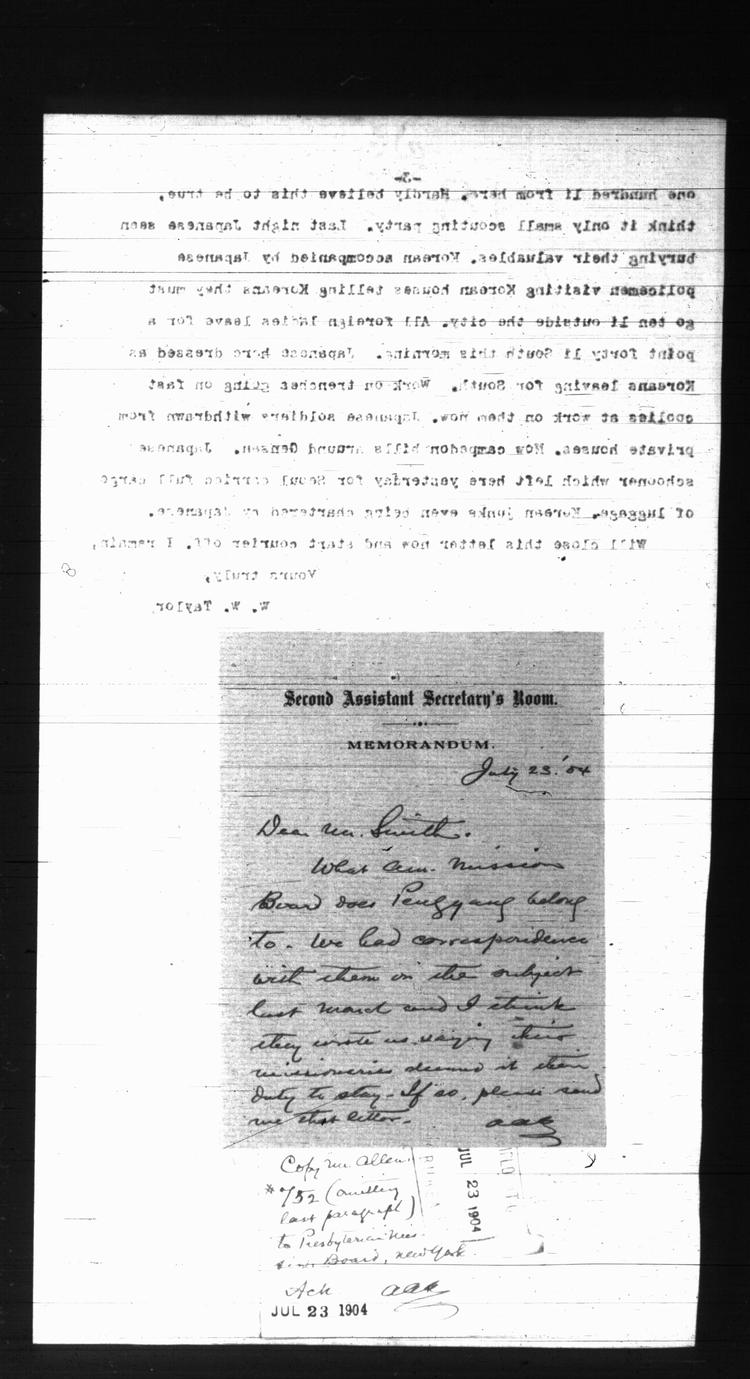 -3-
one hundred li from here. Hardly believe this to be true,
think it only small scouting party. Last night Japanese seen
burying their valuables. Korean accompanied by Japanese
policemen visiting Korean houses telling Koreans they must
go ten li outside the city. All foreign ladies leave for a
point forty li South this morning. Japanese here dressed as
Koreans leaving for South. Work on trenches going on fast
coolies at work on them now. Japanese soldiers withdrawn from
private houses. Now camped on hills around Gensan. Japanese
schooner which left here yesterday for Seoul carried full cargo
of luggage. Korean junks even being chartered by Japanese.
Will close this letter now and start courier off. I remain,
Yours truly,
W. W. Taylor,
Second Assistant Secretary's Room.
MEMORANDUM.
July 23. '04
Dear Mr. Smith.
What Am. Mission
Board does Pengyang belong
to. We had correspondence
with them on the subject
last March and I think
they wrote us saying their
missionaries deemed it their
duty to stay. If so, please send
me that letter.
AAA
Copy Mr. Allen's
#752 (omitting
last paragraph)
to Presbyterian Mis-
sion Board, New York.
Ack AAA
JUL 23 1904
JUL 23 1904